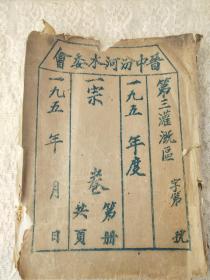 晋中汾河水委會
第三灌溉區
字第 號
一九五 年度
一宗
卷
第 册
共 頁
一九五 年 月 日